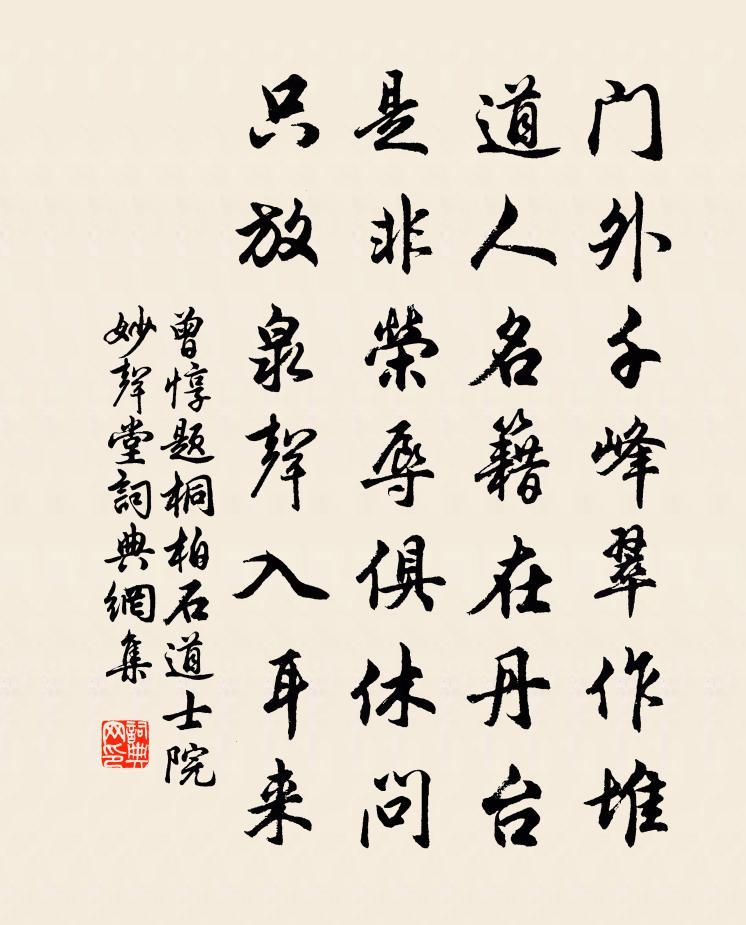 门外千峰翠作堆
道人名籍在丹台
是非榮辱俱休問
只放泉聲入耳来
曾惇题桐柏石道士院
妙聲堂詞典網集
詞典网印